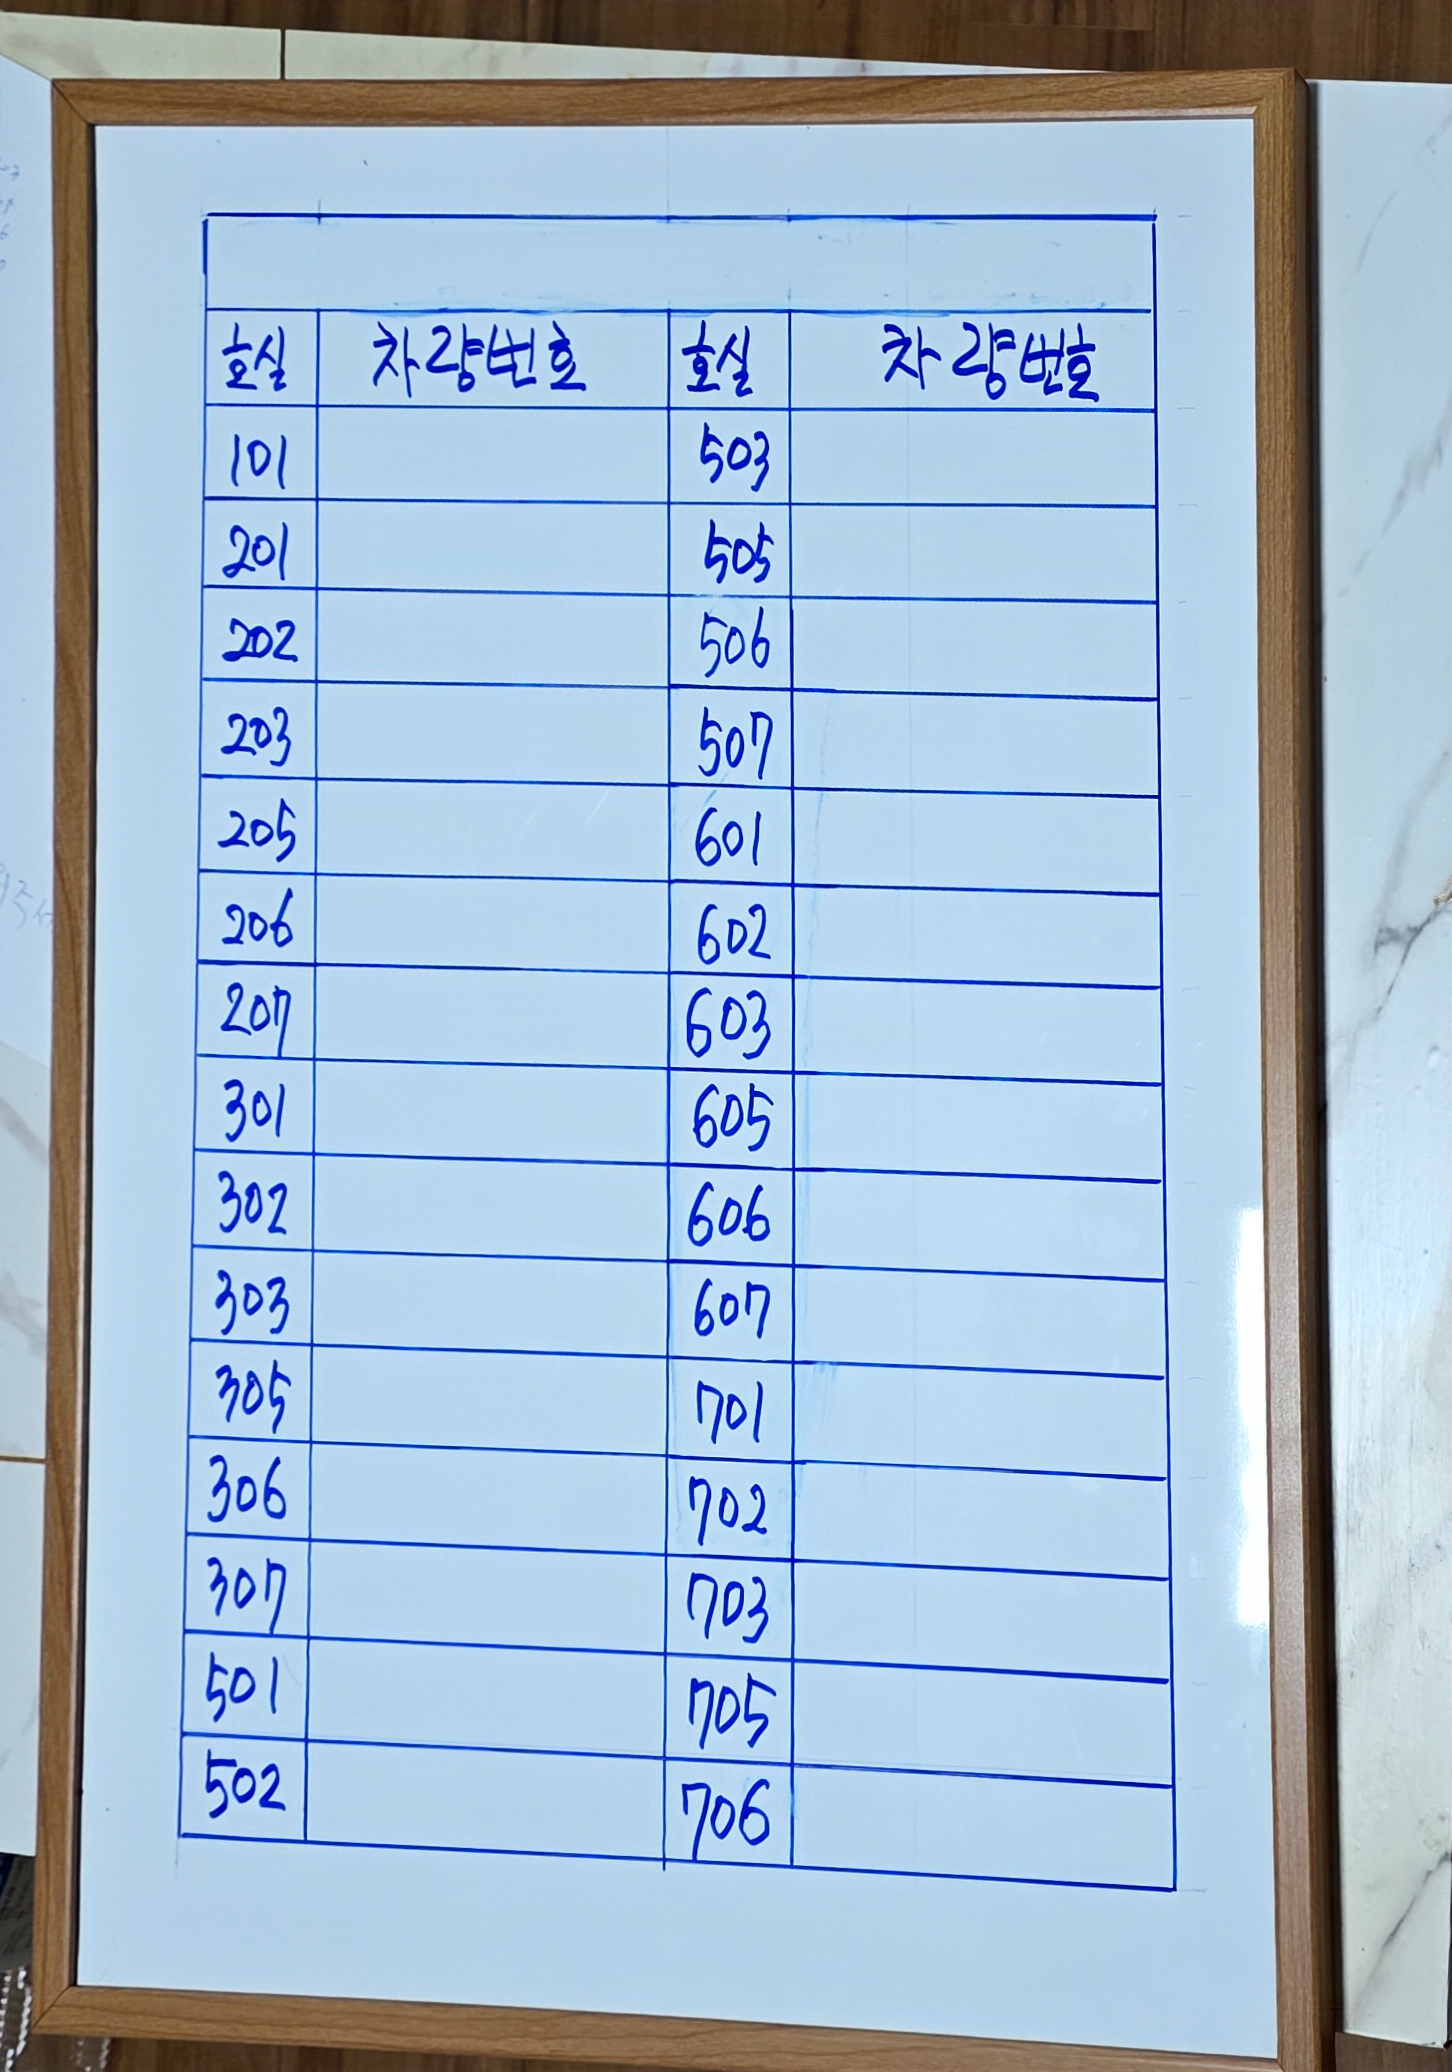 호실 차량번호 호실 차량번호
101 503
201 505
202 506
203 507
205 601
206 602
207 603
301 605
302 606
303 607
305 701
306 702
307 703
501 705
502 706